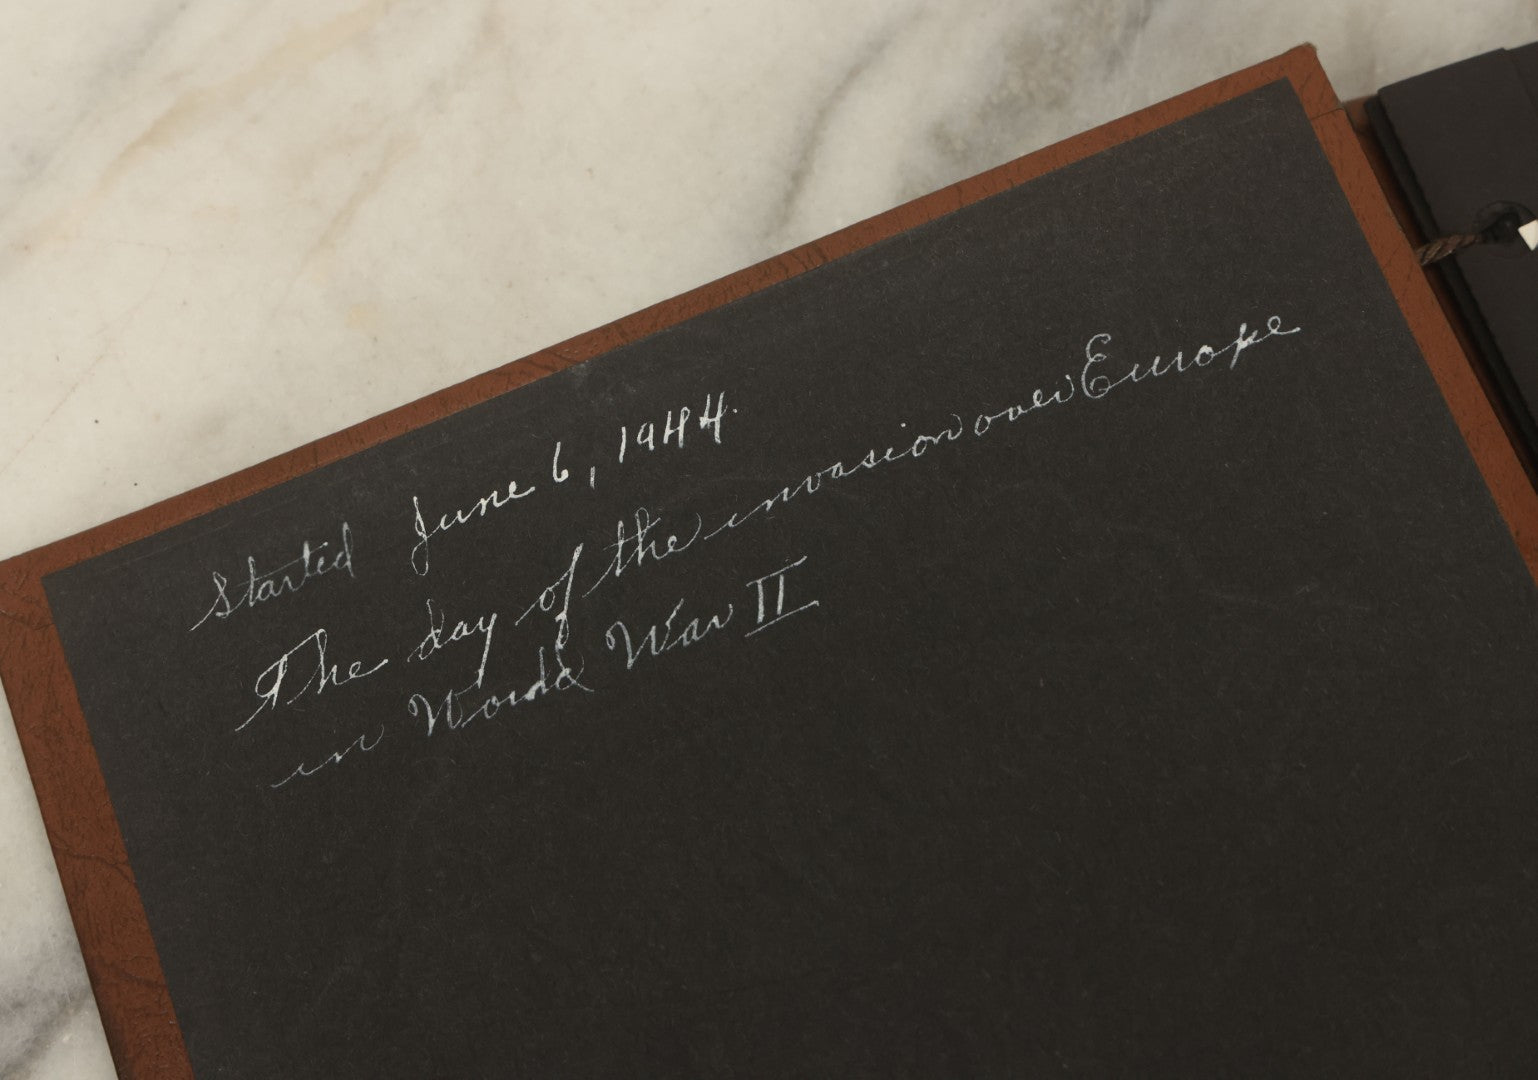 Started June 6, 1944.
The day of the invasion over Europe
in World War II